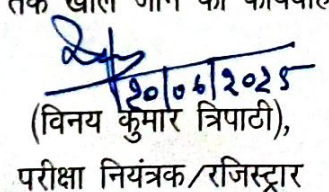 तक खोले जाने की कार्यवाही
२०/०६/२०२५
(विनय कुमार त्रिपाठी),
परीक्षा नियंत्रक/रजिस्ट्रार